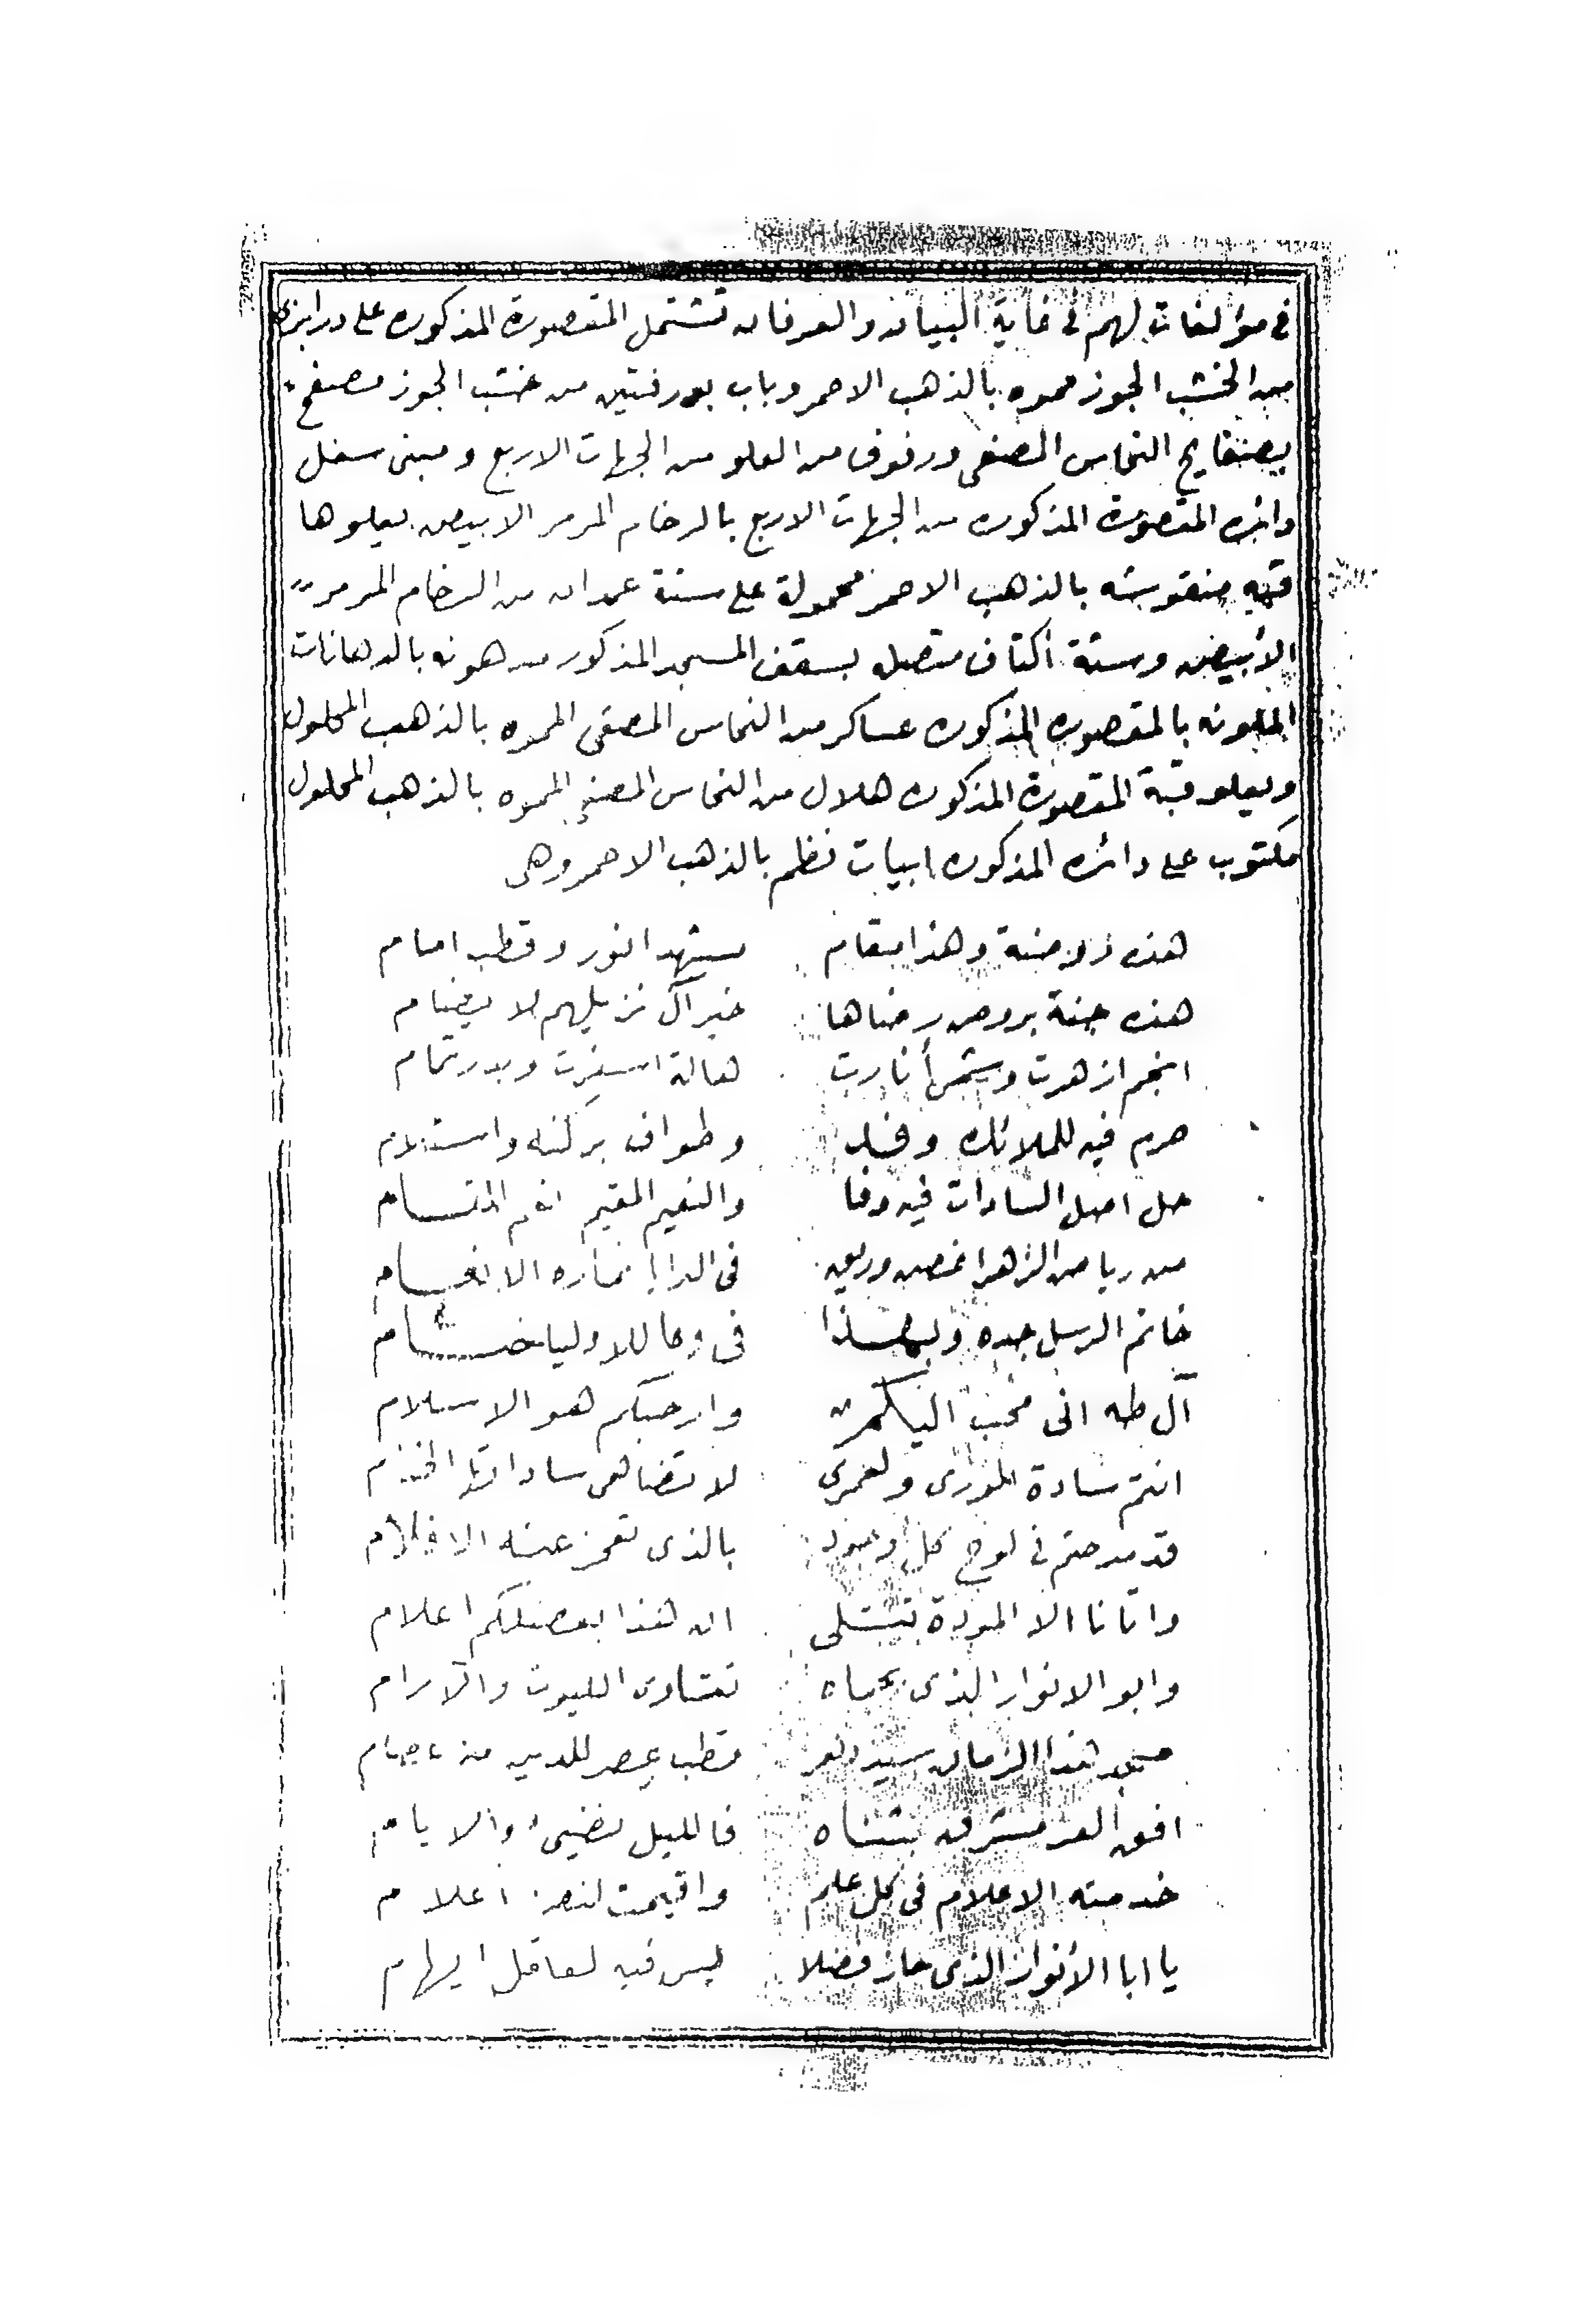 فى مؤلفات لهم فى غاية البيان والعرفان تشتمل المقصورة المذكوره على درابزى
من الخشب الجوز مموه بالذهب الاحمر وباب بدرفتين من خشب الجوز مصفح
بصفايح النحاس المصفى ورفوف من العلو من الجهات الاربع ومبنى سفل
دائره المقصورة المذكوره من الجهات الاربع بالرخام المرمر الابيض يعلوها
قبه منقوشه بالذهب الاحمر محمولة على ستة عمدان من الرخام المرمر
الأبيض وستة أكتاف متصله بسقف المسجد المذكور مدهونه بالدهانات
الملونه بالمقصوره المذكوره عساكر من النحاس المصفى المموه بالذهب المحلول
ويعلو قبة المقصورة المذكوره هلال من النحاس المصفى المموه بالذهب المحلول
مكتوب على دائره المذكوره ابيات نظم بالذهب الاحمر وهى
هذه روضة وهذا مقام مشهد انور وقطب امام
هذه جنة بروض رضاها خير آل نزيلهم لا يضام
انجم ازهرت وشمس أنارت هالة اسفرت وبدر تمام
حرم فيه للملائك وفد وطواف بركنه واستلام
حل اصل السادات فيه وفا والنعيم المقيم
من رياض الزهرا غصن وريق فى البرايا ثماره الانعام
خاتم الرسل جده ولهذا فى وفا للاوليا ختام
آل طه انى محب اليكم وارحبكم هو الاسلام
انتم سادة الورى ولعمرى لا تضاهى ساداتها الخدام
قد مدحتم فى لوح كل وجود بالذى تعجز عنه الاقلام
واتانا الا المودة تتلى ان هذا بفضلكم اعلام
وابو الانوار الذى بحماه تتساوى الليوث والآرام
هذا الزمان سيد قطب عصر للدين منه
افق العز مشرق بسناه فالليل تضيئ والايام
خدمته الاعلام فى كل علم واقيمت لنصره اعلام
يا ابا الأنوار الذى حاز فضلا ليس فيه لعاقل ايهام